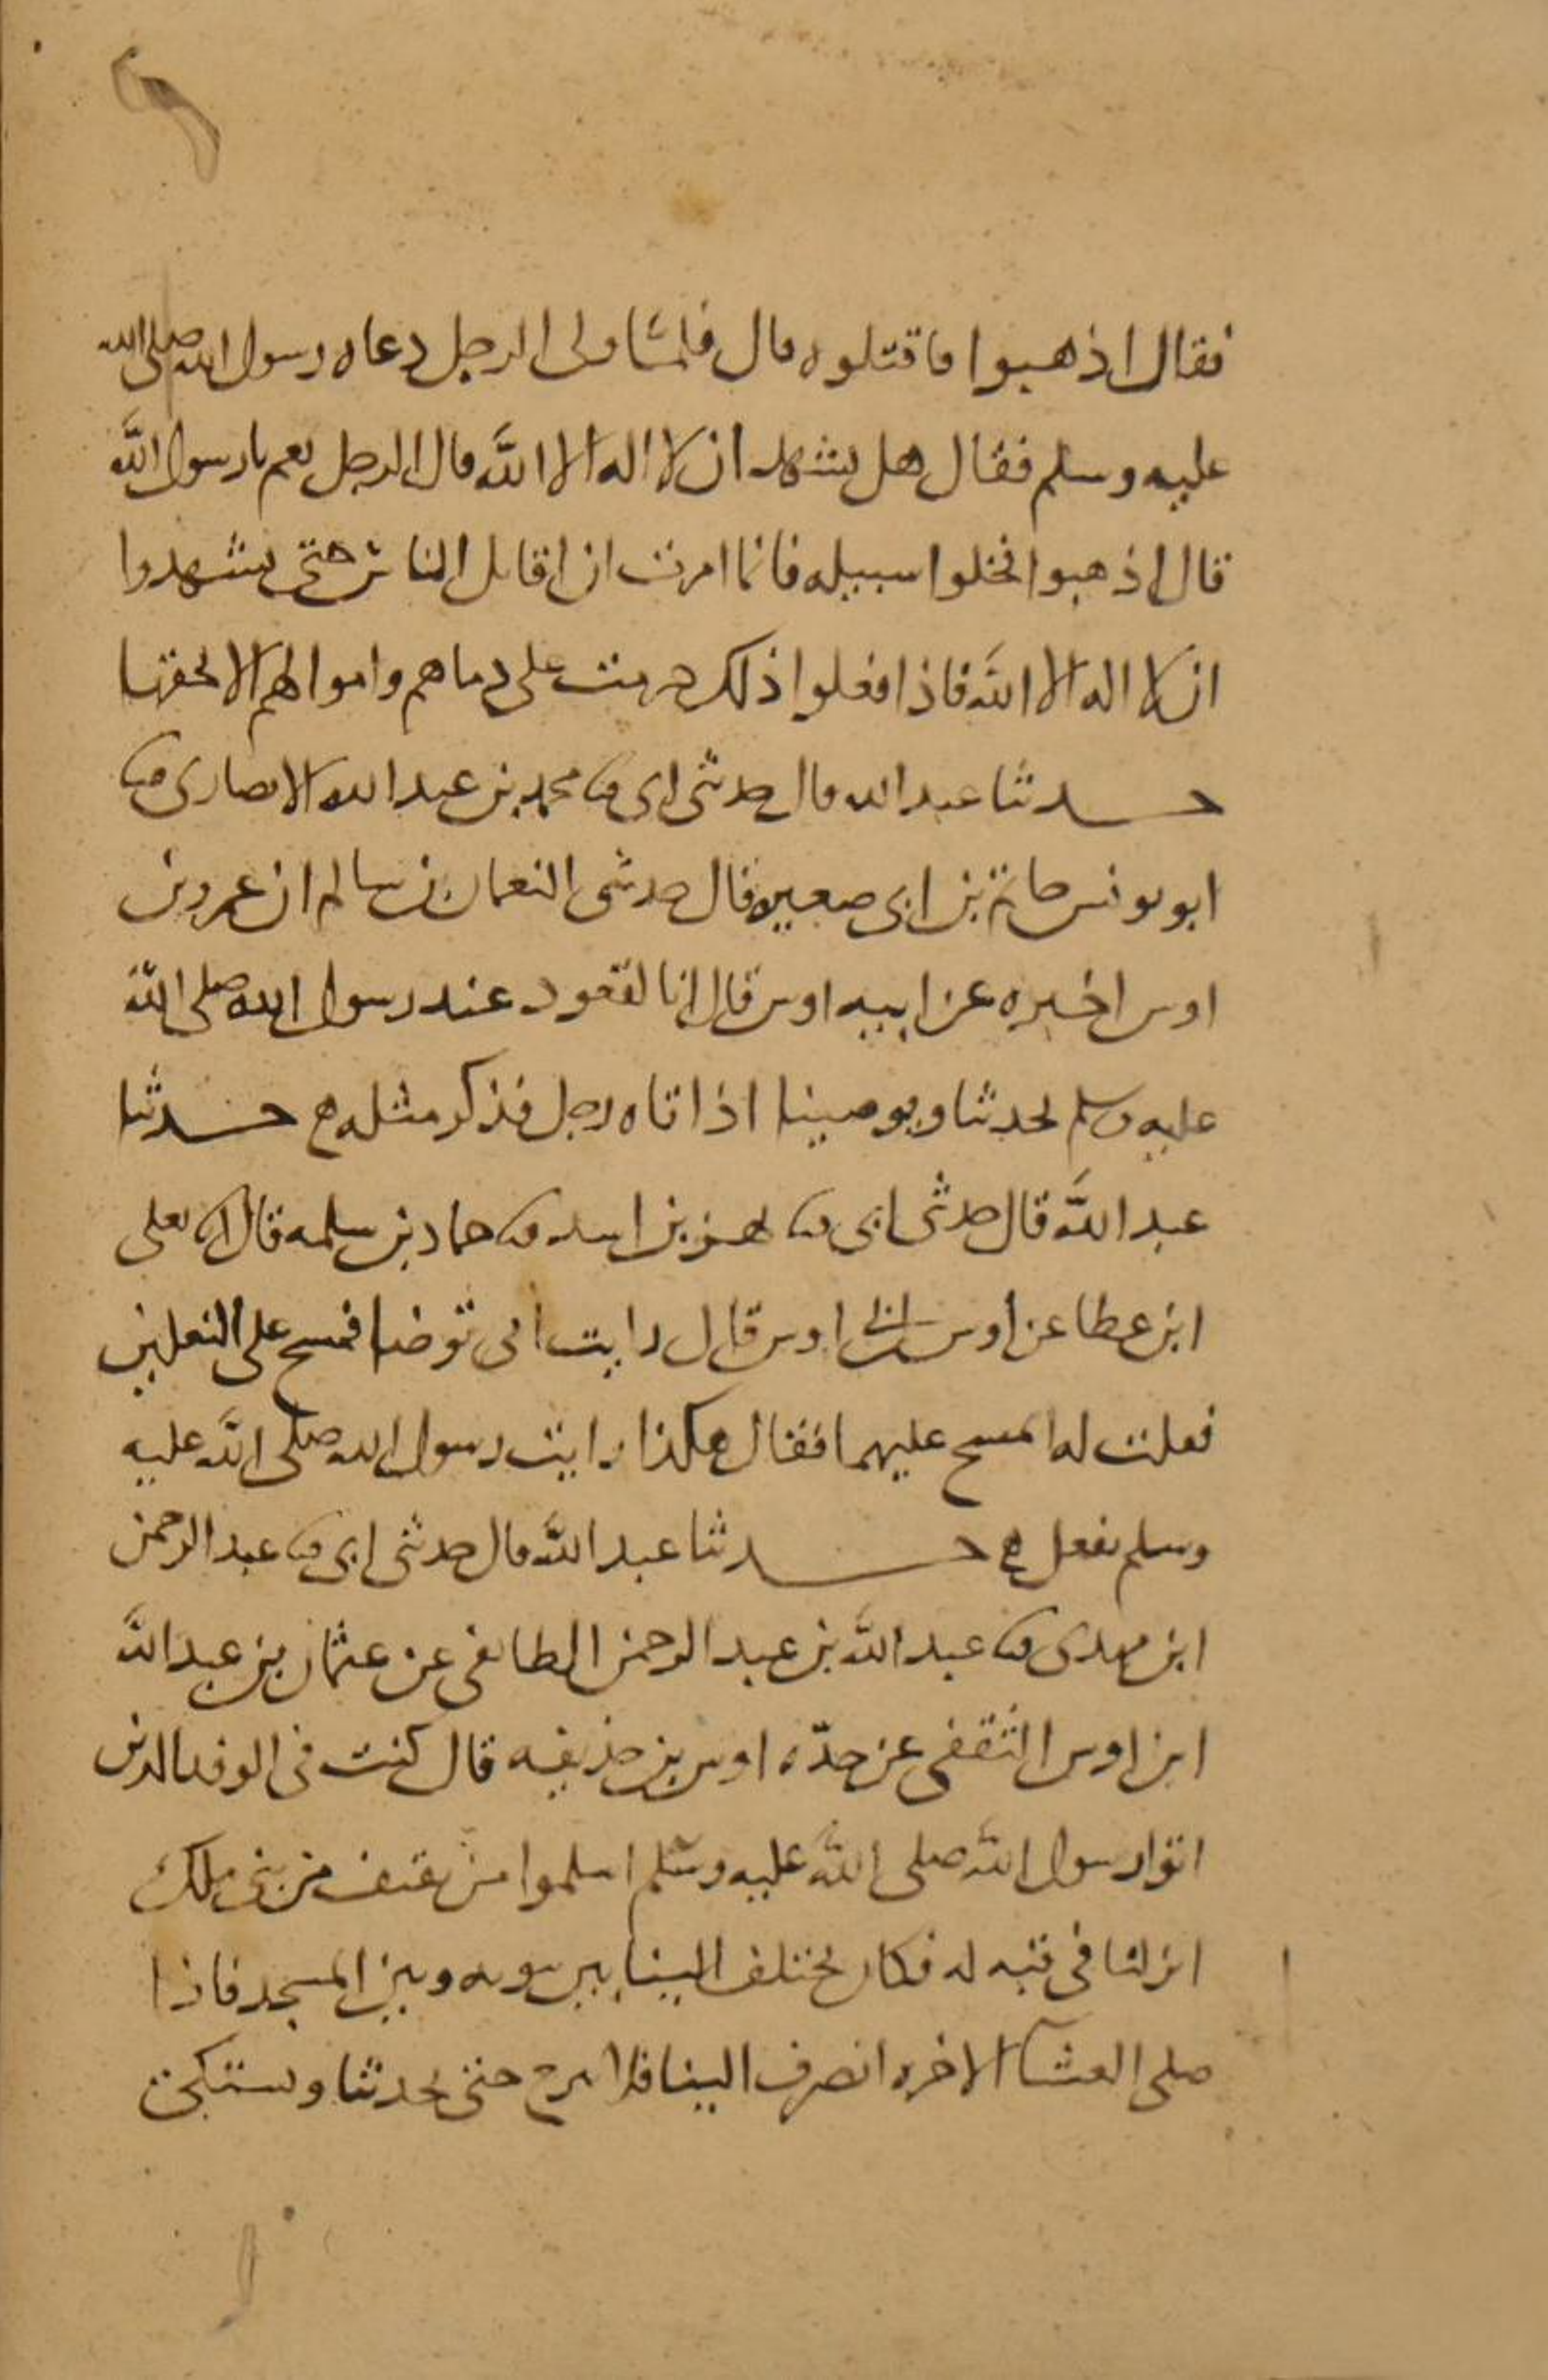 فقال اذهبوا فاقتلوه قال فلما ولى الرجل دعاه رسول الله صلى الله
عليه وسلم فقال هل تشهد ان لا اله الا الله قال الرجل نعم يا رسول الله
قال اذهبوا فخلوا سبيله فانما امرت ان اقاتل الناس حتى يشهدوا
ان لا اله الا الله فاذا فعلوا ذلك حرمت على دماهم واموالهم الا بحقها
حدثنا عبد الله قال حدثني ابي ثنا محمد بن عبد الله الانصاري ثنا
ابو يونس حاتم بن ابي صغيره قال حدثني النعمان بن سالم ان عمرو بن
اوس اخبره عن ابيه اوس قال انا لقعود عند رسول الله صلى الله
عليه وسلم يحدثنا ويوصينا اذ اتاه رجل فذكر مثله حدثنا
عبد الله قال حدثني ابي ثنا بهز بن اسد ثنا حماد بن سلمه قال انا يعلى
ابن عطا عن اوس بن ابي اوس قال رايت ابي توضا فمسح على النعلين
فقلت له اتمسح عليهما فقال هكذا رايت رسول الله صلى الله عليه
وسلم يفعل حدثنا عبد الله قال حدثني ابي ثنا عبد الرحمن
ابن مهدى ثنا عبد الله بن عبد الرحمن الطايفي عن عثمان بن عبد الله
ابن اوس الثقفي عن جدّه اوس بن حذيفه قال كنت في الوفد الذين
اتوا رسول الله صلى الله عليه وسلم اسلموا من ثقيف من بني ملك
انزلنا في قبه له فكان يختلف الينا بين بيوته وبين المسجد فاذا
صلى العشآ الاخره انصرف الينا فلا يبرح حتى يحدثنا ويشتكي